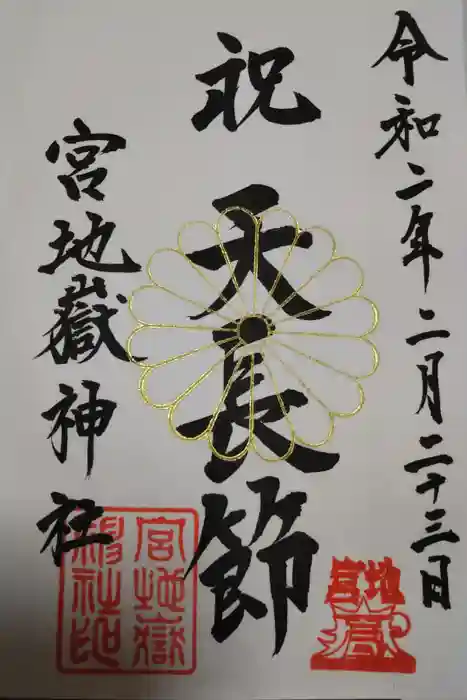 令和二年二月二十三日
祝 天長節
宮地嶽神社
宮地嶽
神社印
宮地
嶽